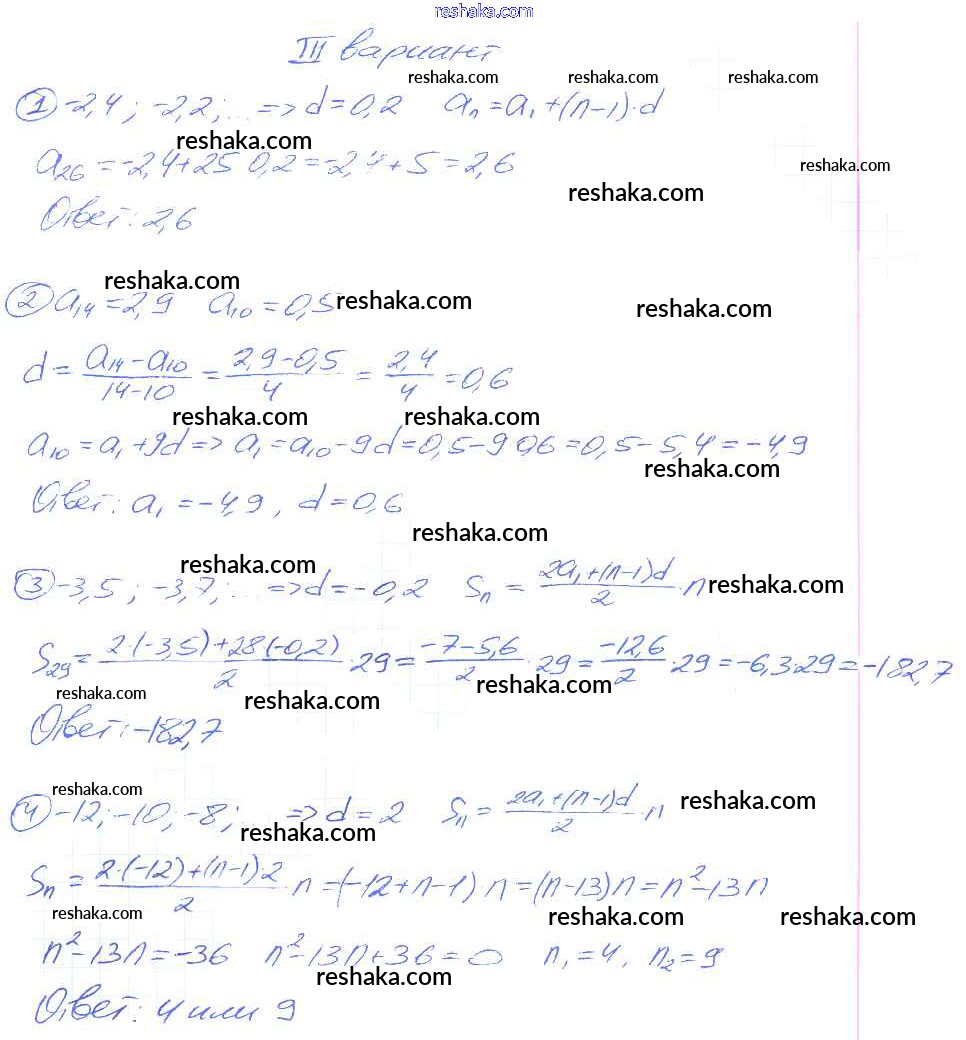 reshaka.com
III вариант
reshaka.com reshaka.com reshaka.com
① -2,4; -2,2; ... => d=0,2 aₙ=a₁+(n-1)·d
reshaka.com
a₂₆=-2,4+25·0,2=-2,4+5=2,6
reshaka.com
reshaka.com
Ответ: 2,6
reshaka.com
② a₁₄=2,9 a₁₀=0,5
reshaka.com
reshaka.com
d=(a₁₄-a₁₀)/(14-10)=(2,9-0,5)/4=2,4/4=0,6
reshaka.com reshaka.com
a₁₀=a₁+9d=>a₁=a₁₀-9d=0,5-9·0,6=0,5-5,4=-4,9
reshaka.com
Ответ: a₁=-4,9, d=0,6
reshaka.com
reshaka.com
③ -3,5; -3,7; ... => d=-0,2 Sₙ=(2a₁+(n-1)d)/2·n
reshaka.com
S₂₉=(2·(-3,5)+28·(-0,2))/2·29=(-7-5,6)/2·29=(-12,6)/2·29=-6,3·29=-182,7
reshaka.com reshaka.com reshaka.com
Ответ: -182,7
reshaka.com
④ -12; -10; -8; ... => d=2 Sₙ=(2a₁+(n-1)d)/2·n
reshaka.com
reshaka.com
Sₙ=(2·(-12)+(n-1)·2)/2·n=(-12+n-1)·n=(n-13)n=n²-13n
reshaka.com reshaka.com reshaka.com
n²-13n=-36 n²-13n+36=0 n₁=4, n₂=9
reshaka.com
Ответ: 4 или 9